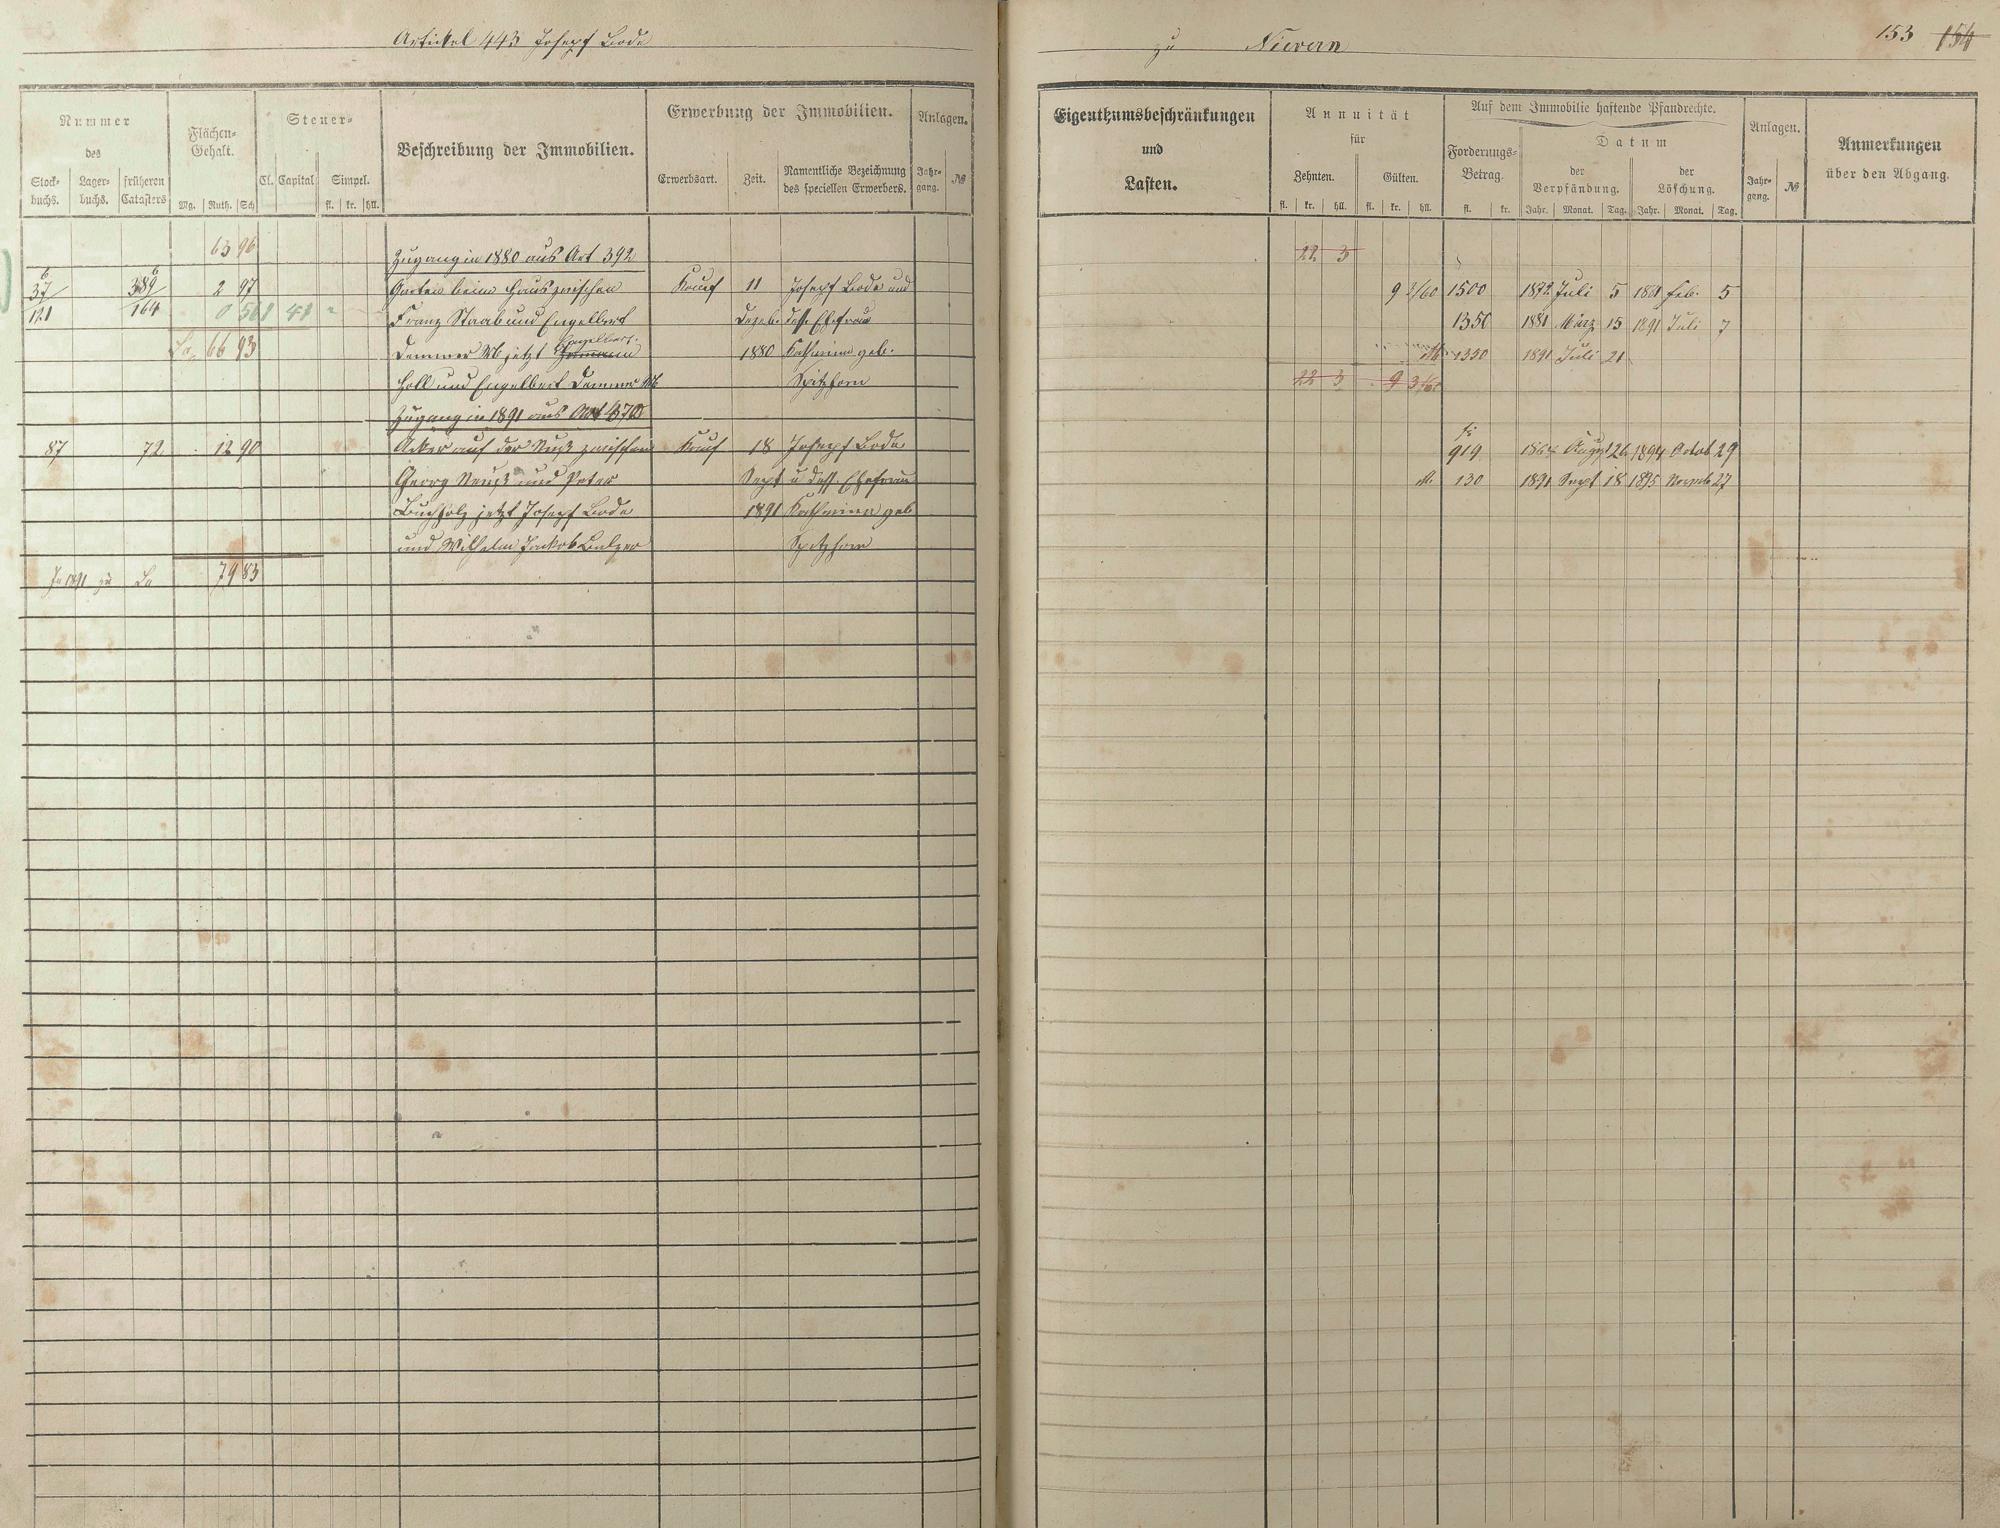 Artikel 443 Josef Bode
zu Nievern
153 154
Nummer
des
Stock-
buchs.
Lager-
buchs.
früheren
Catasters
Flächen-
Gehalt.
Mg. Ruth. Sch
Steuer-
Cl. Capital Simpel.
fl. kr. hll.
Beschreibung der Immobilien.
Erwerbung der Immobilien.
Erwerbsart. Zeit.
Namentliche Bezeichnung
des speciellen Erwerbers.
Anlagen.
Jahr-
gang. №
Eigenthumsbeschränkungen
und
Lasten.
Annuität
für
Zehnten. Gülten.
fl. kr. hll. fl. kr. hll.
Auf dem Immobilie haftende Pfandrechte.
Forderungs-
Betrag.
fl. kr.
Datum
der
Verpfändung.
der
Löschung.
Jahr. Monat. Tag. Jahr. Monat. Tag.
Anlagen.
Jahr-
gang. №
Anmerkungen
über den Abgang.
63 96 Zugang in 1880 aus Art 392 22 3
37 389 2 97 Garten beim Haus zwischen Kauf 11 Josepf Bode und 9 2/60 1500 1872 Juli 5 1881 Feb. 5
121 164 0 56 1 41 Franz Staab und Engelbert Dezeb. dess. Ehefrau 1350 1881 März 15 1891 Juli 7
La. 66 93 Demmer M jetzt Engelbert 1880 Katharina geb. M. 1350 1891 Juli 21
Holl und Engelbert Demmer Spitzhorn 22 3 9 3/60
Zugang in 1891 aus Art
87 72 12 90 Acker auf der Nuß zwischen Kauf 18 Josepf Bode 919 1864 August 26 1894 Octob 29
Georg Neuß und Peter Sept u. dess. Ehefrau M. 130 1891 Sept 18 1895 Novemb 27
Buchholz jetzt Josepf Bode 1891 Katharina geb
und Wilhelm Jackob Balzer Spitzhorn
In 1891 zu La 79 83